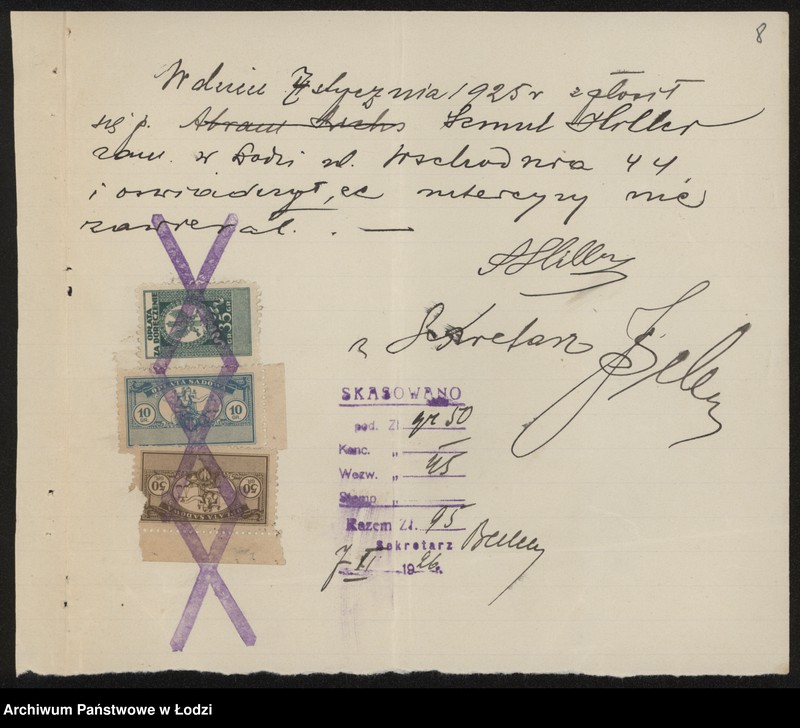 8
W dniu 7 stycznia 1925 r zgłosił
się p. Abram Szmul Hiller
zam. w Łodzi ul. Wschodnia 44
i oświadczył, że intercyzy nie
zawierał. . —
AHiller
Sekretarz
OPŁATA
ZA DORĘCZENIE
35 GR
OPŁATA SĄDOWA
10 GR 10 GR
50 GR 50 GR
OPŁATA SĄDOWA
SKASOWANO
pod. Zł. gr 50
Kanc. " —
Wezw. " 45
Stemp. "
Razem Zł. 95
Sekretarz
7 II 1926 r.
Archiwum Państwowe w Łodzi